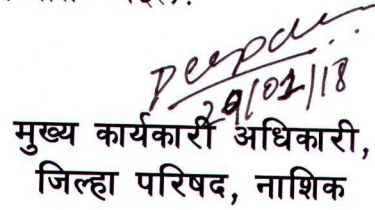 29/01/18
मुख्य कार्यकारी अधिकारी,
जिल्हा परिषद, नाशिक